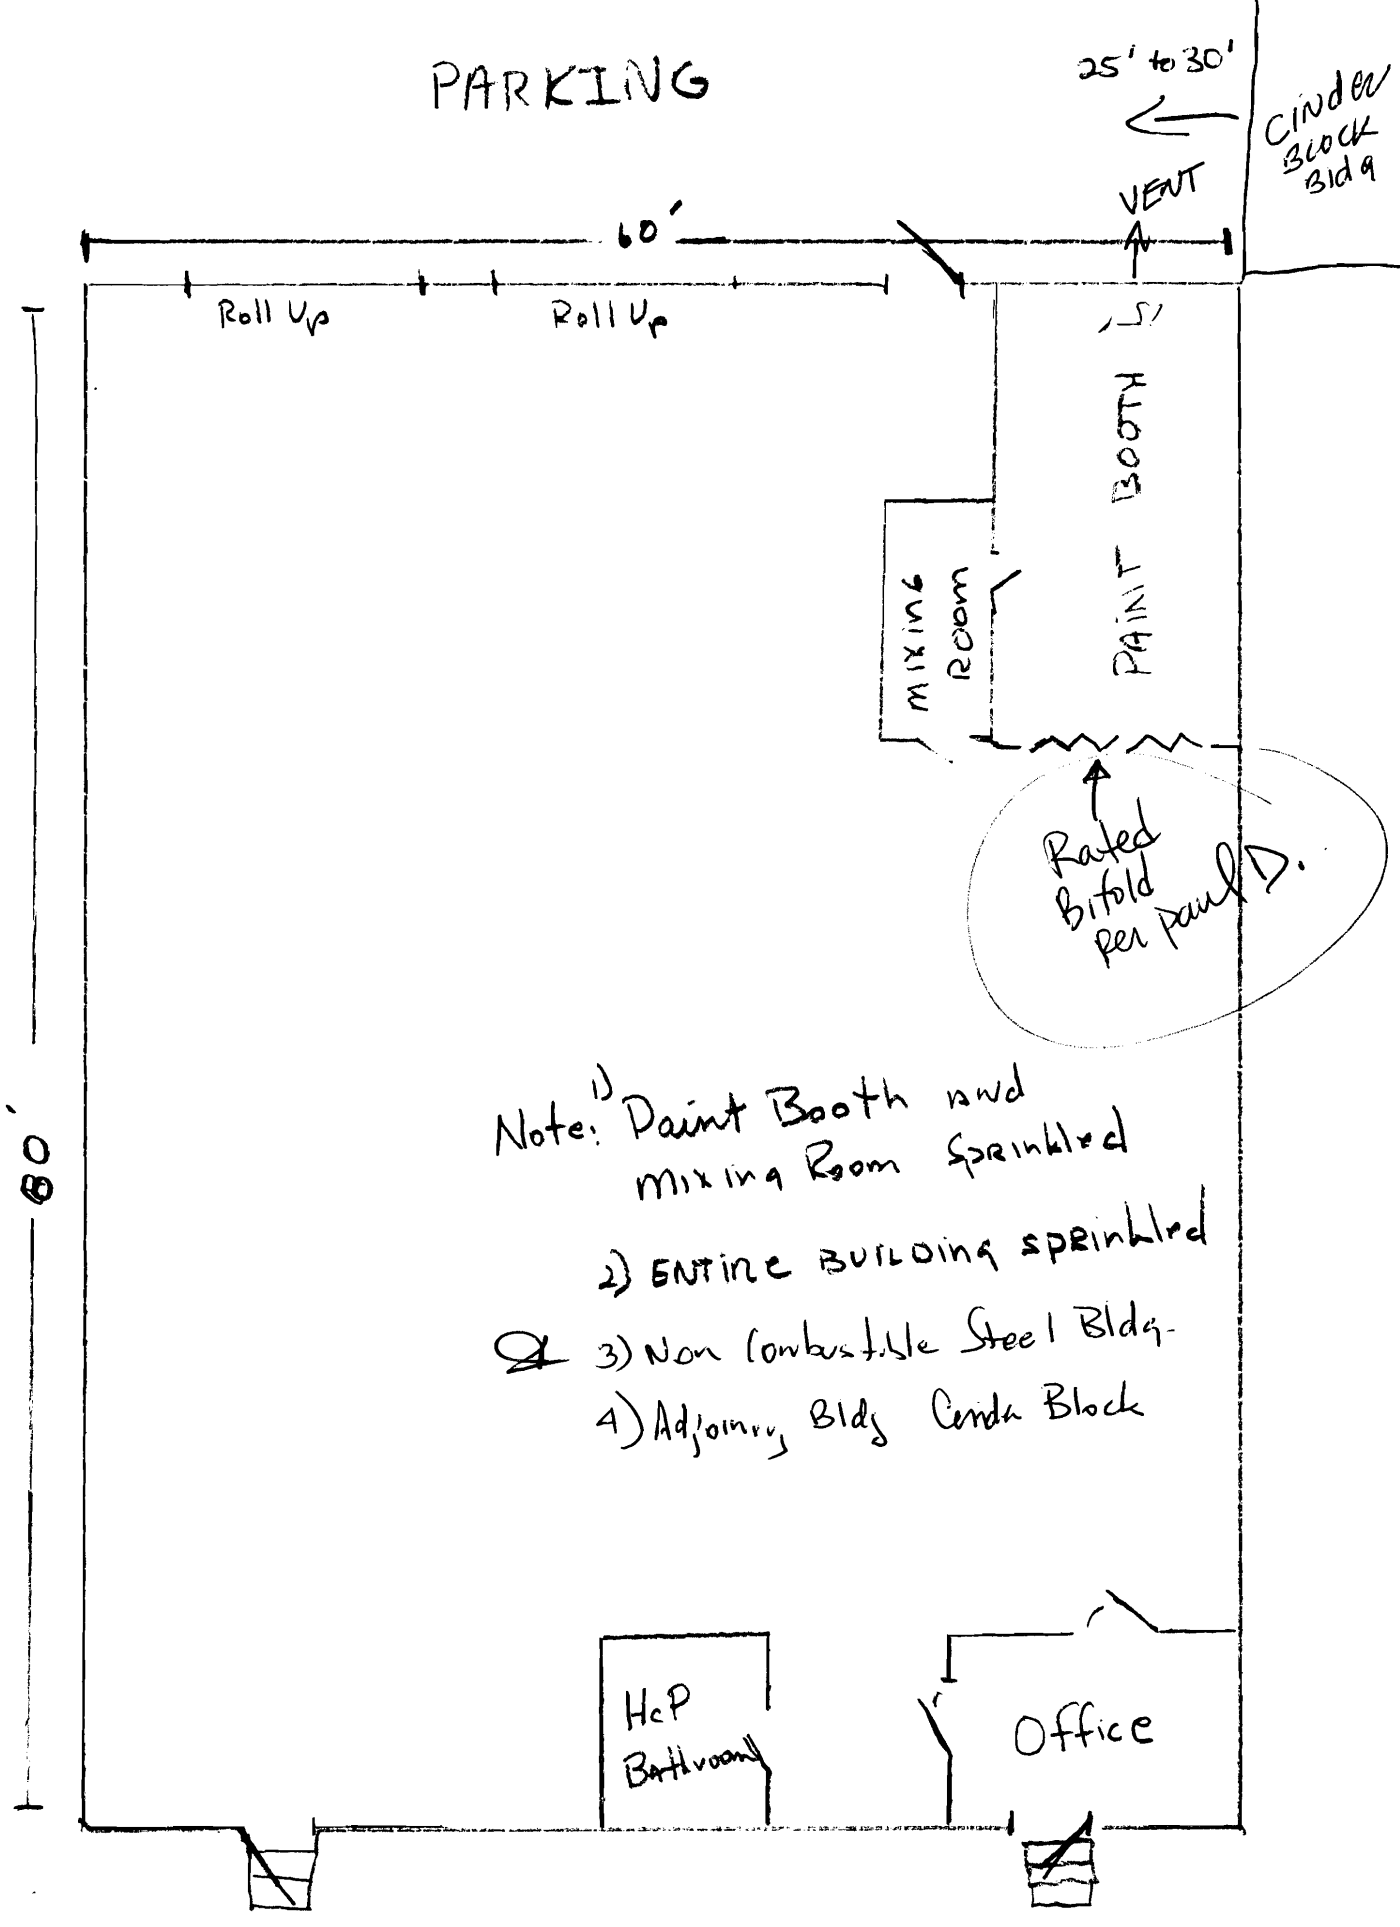 PARKING
25' to 30'
Cinder
Block
Bldg
VENT
60'
Roll Up
Roll Up
PAINT BOOTH
MIXING
ROOM
Rated
Bifold
per Paul D.
80'
Note: 1) Paint Booth and
Mixing Room Sprinkled
2) ENTIRE BUILDING SPRINKLED
3) Non Combustible Steel Bldg.
4) Adjoining Bldg Cinder Block
HCP
Bathroom
Office